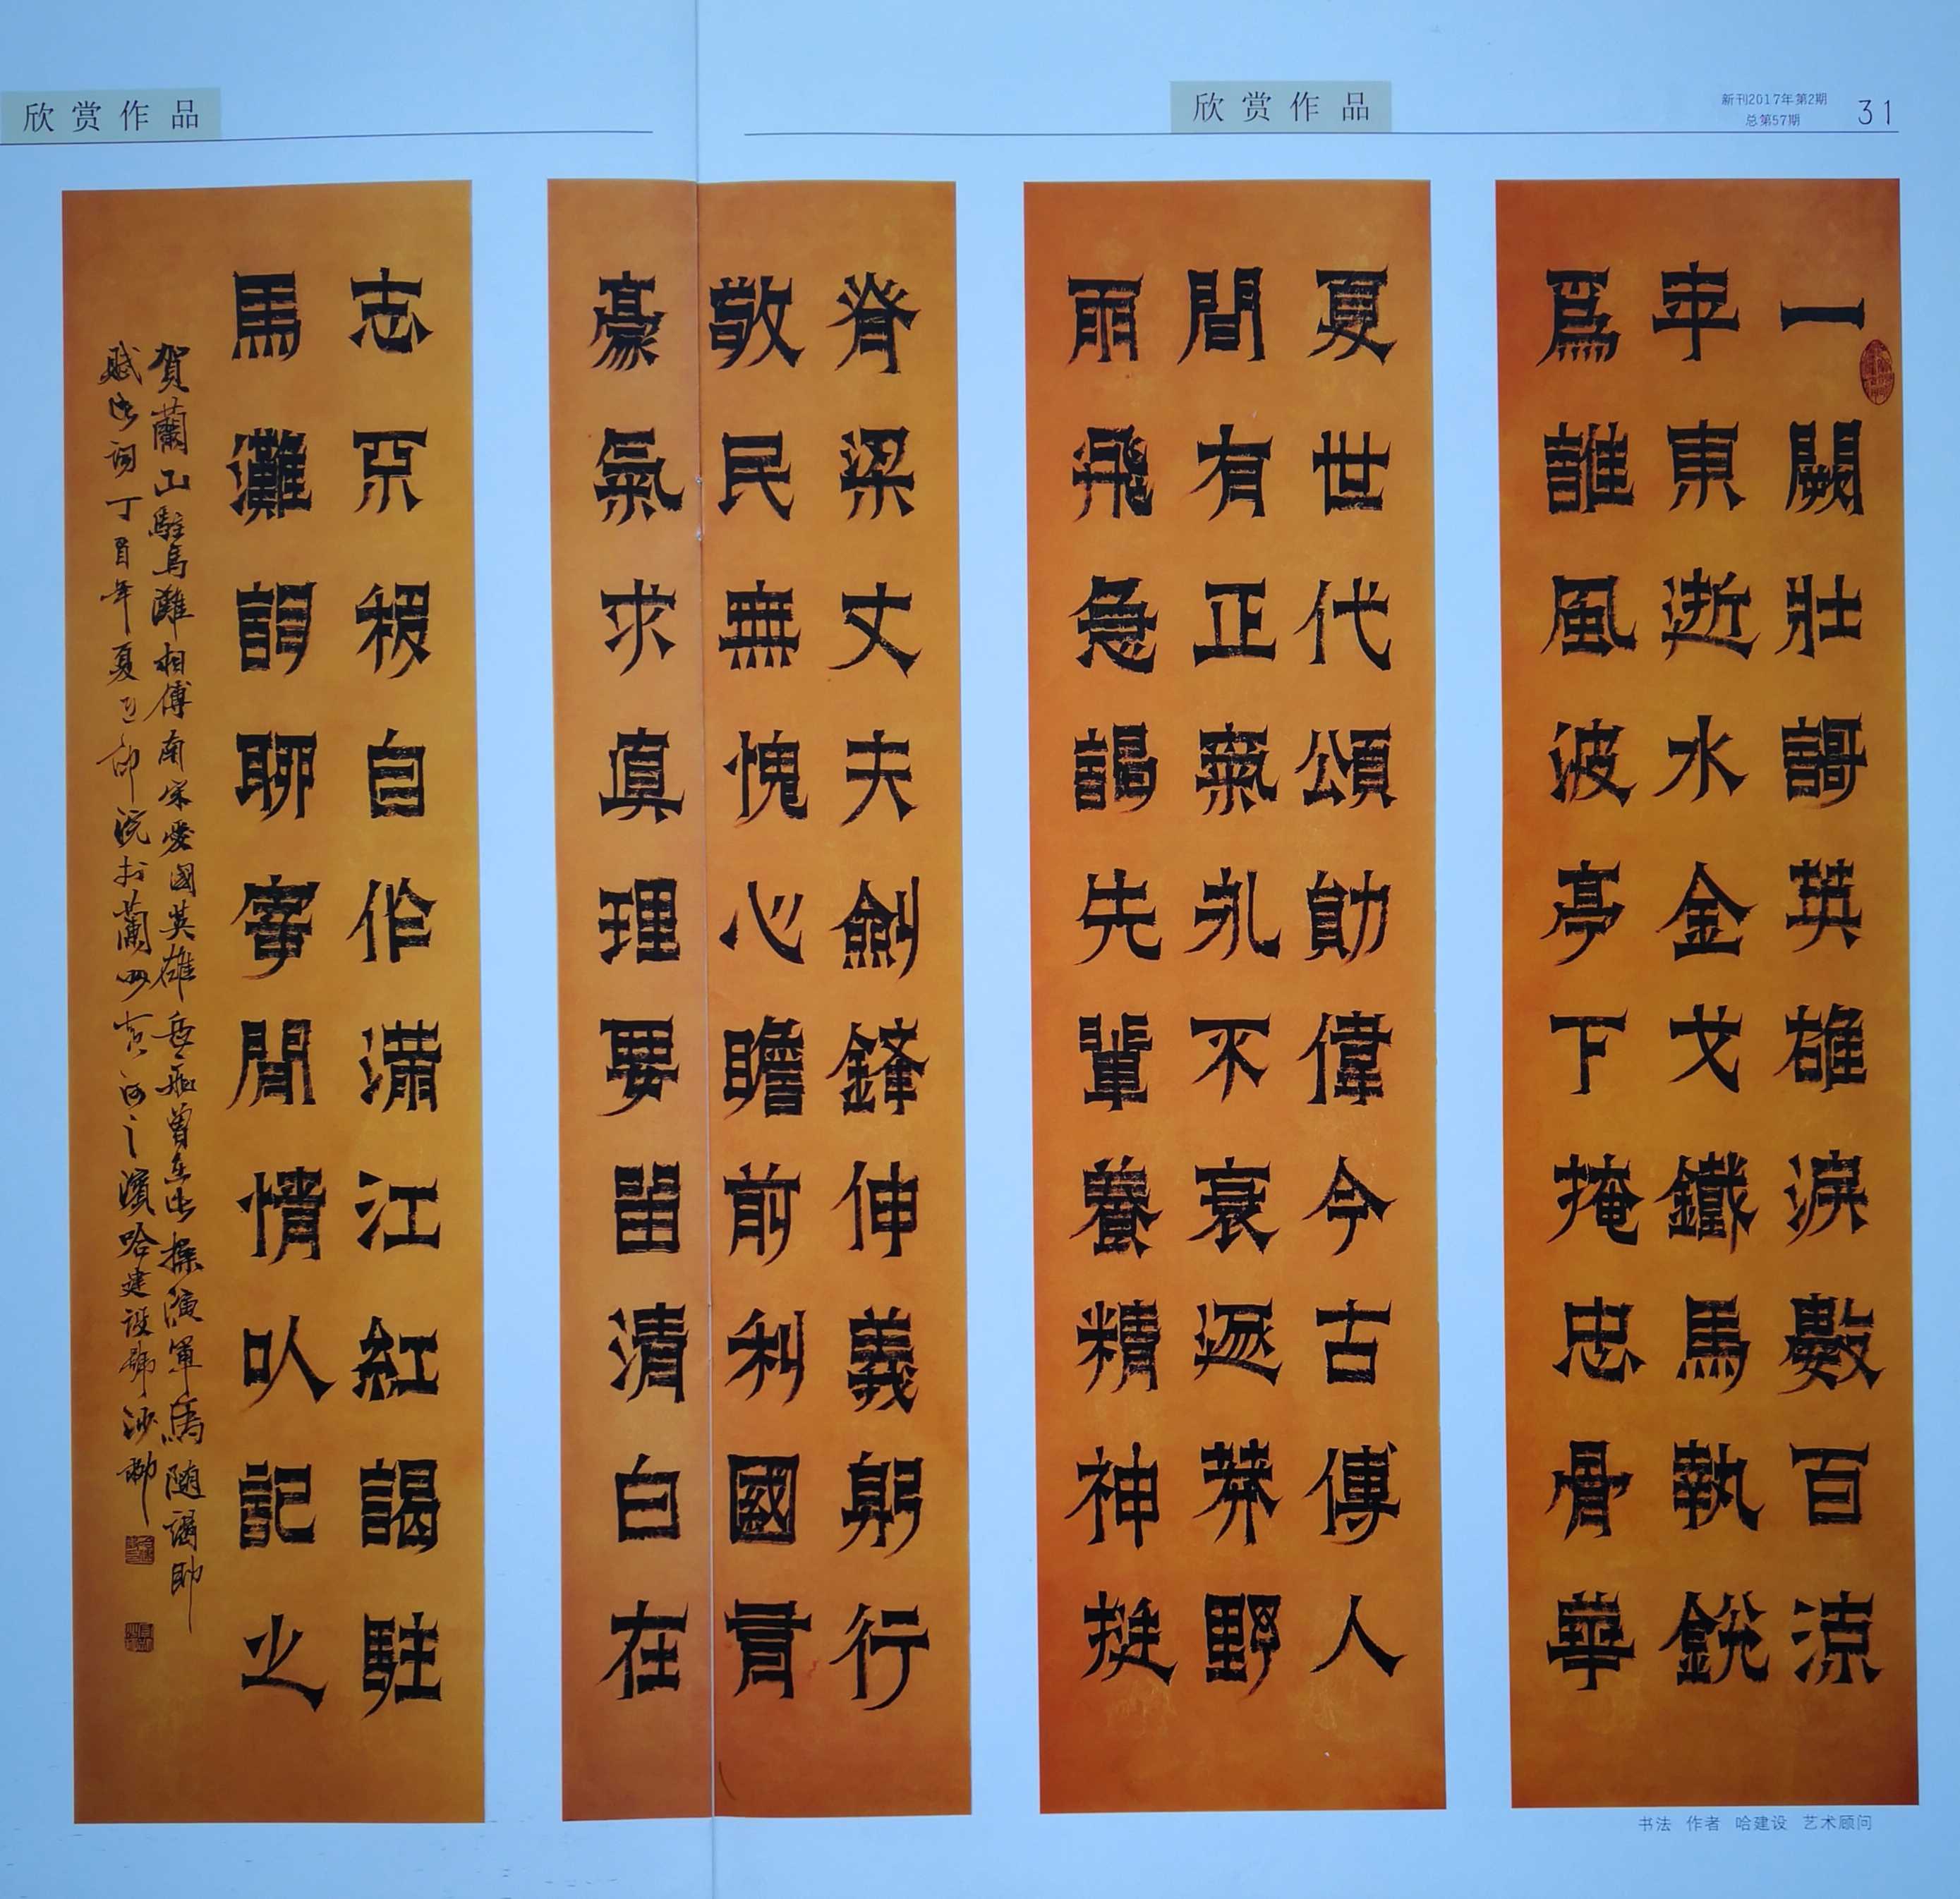 欣赏作品
欣赏作品
新刊2017年第2期
总第57期
31
一闕壯謌英雄淚數百涼
年東逝水金戈鐵馬執銳
爲誰風波亭下掩忠骨華
夏世代頌勛偉今古傳人
間有正氣永不衰逐莽野
雨飛急謁先輩養精神挺
脊梁丈夫劍鋒伸義躬行
敬民無愧心瞻前利國言
豪氣求真理要留清白在
志自作滿江紅謁駐
馬灘詞聊寄閒情以記之
賀蘭山駐馬灘相傳南宋愛國英雄岳飛曾在此操演軍馬隨謁即
賦此詞丁酉年夏於蘭州黃河之濱哈建設號沙柳
书法 作者 哈建设 艺术顾问